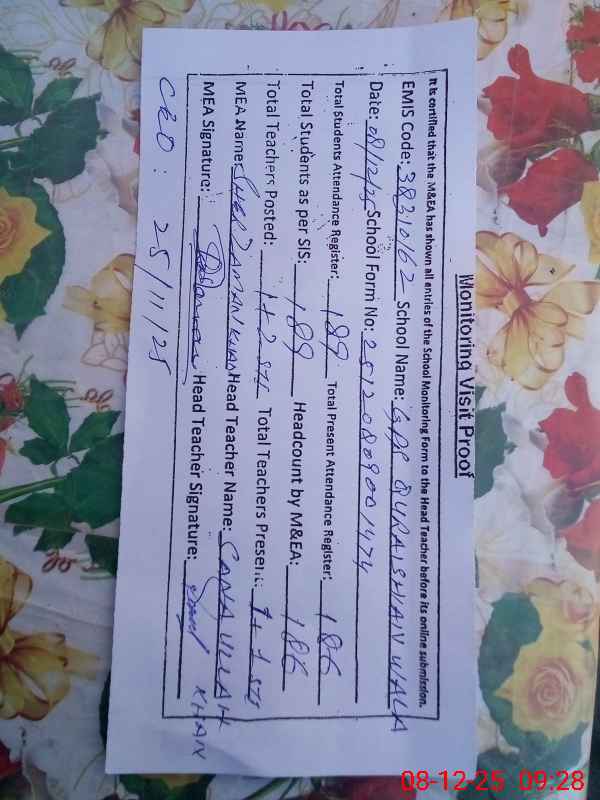 Monitoring Visit Proof
It is certified that the M&EA has shown all entries of the School Monitoring Form to the Head Teacher before its online submission.
EMIS Code: 38310162 School Name: GPS QURAISHIAN WALA
Date: 08/12/25 School Form No: 25120809001474
Total Students Attendance Register: 189 Total Present Attendance Register: 186
Total Students as per SIS: 189 Headcount by M&EA: 186
Total Teachers Posted: 1+2 STI Total Teachers Present: 1+1 STI
MEA Name: SHER ZAMAN KHAN Head Teacher Name: SANA ULLAH KHAN
MEA Signature: Head Teacher Signature:
CEO: 25/11/25
08-12-25 09:28